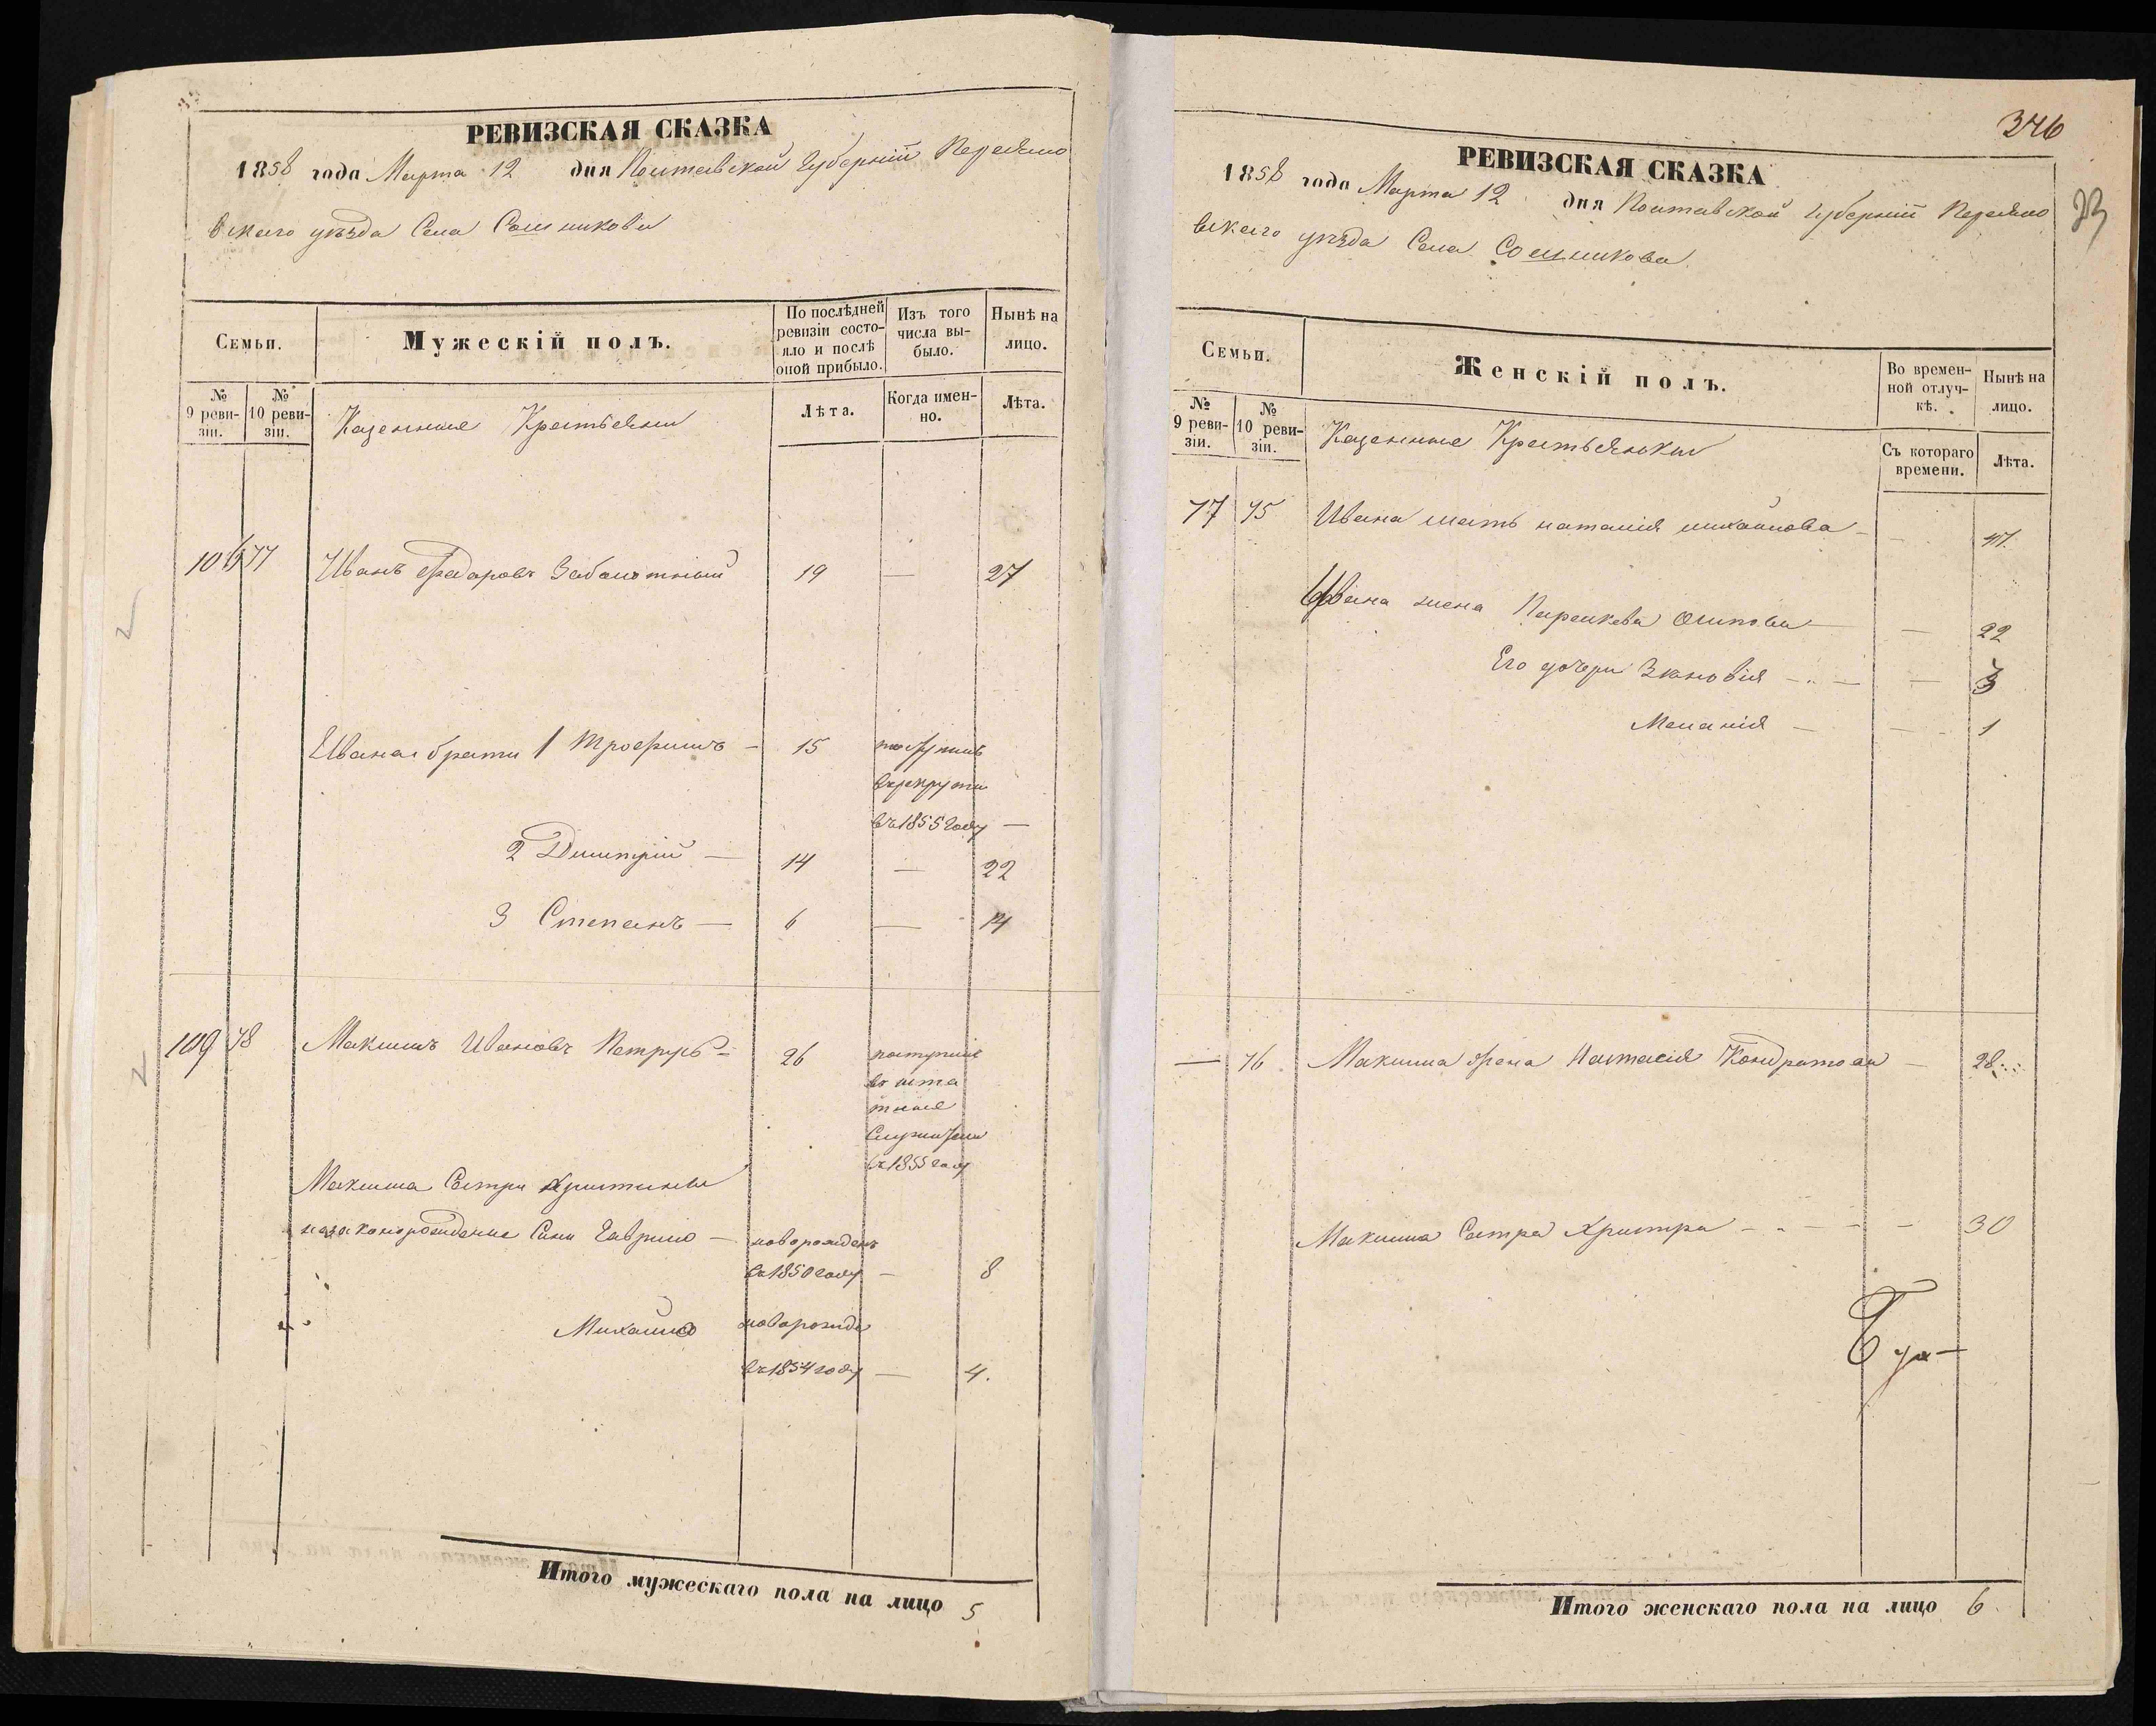 РЕВИЗСКАЯ СКАЗКА
1858 года Марта 12 дня Полтавской Губерніи Переясло
вскаго уѣзда Села Сошникова
Семьи.
Мужескій полъ.
По послѣдней ревизіи состо-
яло и послѣ
оной прибыло.
Изъ того
числа вы-
было.
Нынѣ на
лицо.
№
9 реви-
зіи.
№
10 реви-
зіи.
Казенные Крестьяне
Лѣта.
Когда имен-
но.
Лѣта.
Иванъ Федоровъ Заболотный 19 — 27
Ивана братья 1 Трофимъ — 15 поступилъ
въ рекруты
въ 1855 году —
2 Дмитрій — 14 — 22
3 Степанъ — 6 — 14
109 78 Максимъ Ивановъ 26 поступилъ
въ шта
тные
Служители
въ 1855 году
Максима Сестры Христины
незаконорожденные Сыны Гаврило — новорожденъ
въ 1850 году — 8
Михайло новорожде
въ 1854 году — 4.
Итого мужескаго пола на лицо 5
346
23
РЕВИЗСКАЯ СКАЗКА
1858 года Марта 12 дня Полтавской Губерніи Переясло
вскаго уѣзда Села Сошникова
Семьи.
Женскій полъ.
Во времен-
ной отлуч-
кѣ.
Нынѣ на
лицо.
№
9 реви-
зіи.
№
10 реви-
зіи.
Казенные Крестьянки
Съ котораго
времени.
Лѣта.
77 75 Ивана мать наталія михайлова — — 47.
Ивана жена Параскева Осипова — — 22
Его дочери Зиновія — — 3
Меланія — — 1
— 76 Максима жена Настасія Кондратова — 28
Максима Сестра — 30
Итого женскаго пола на лицо 6